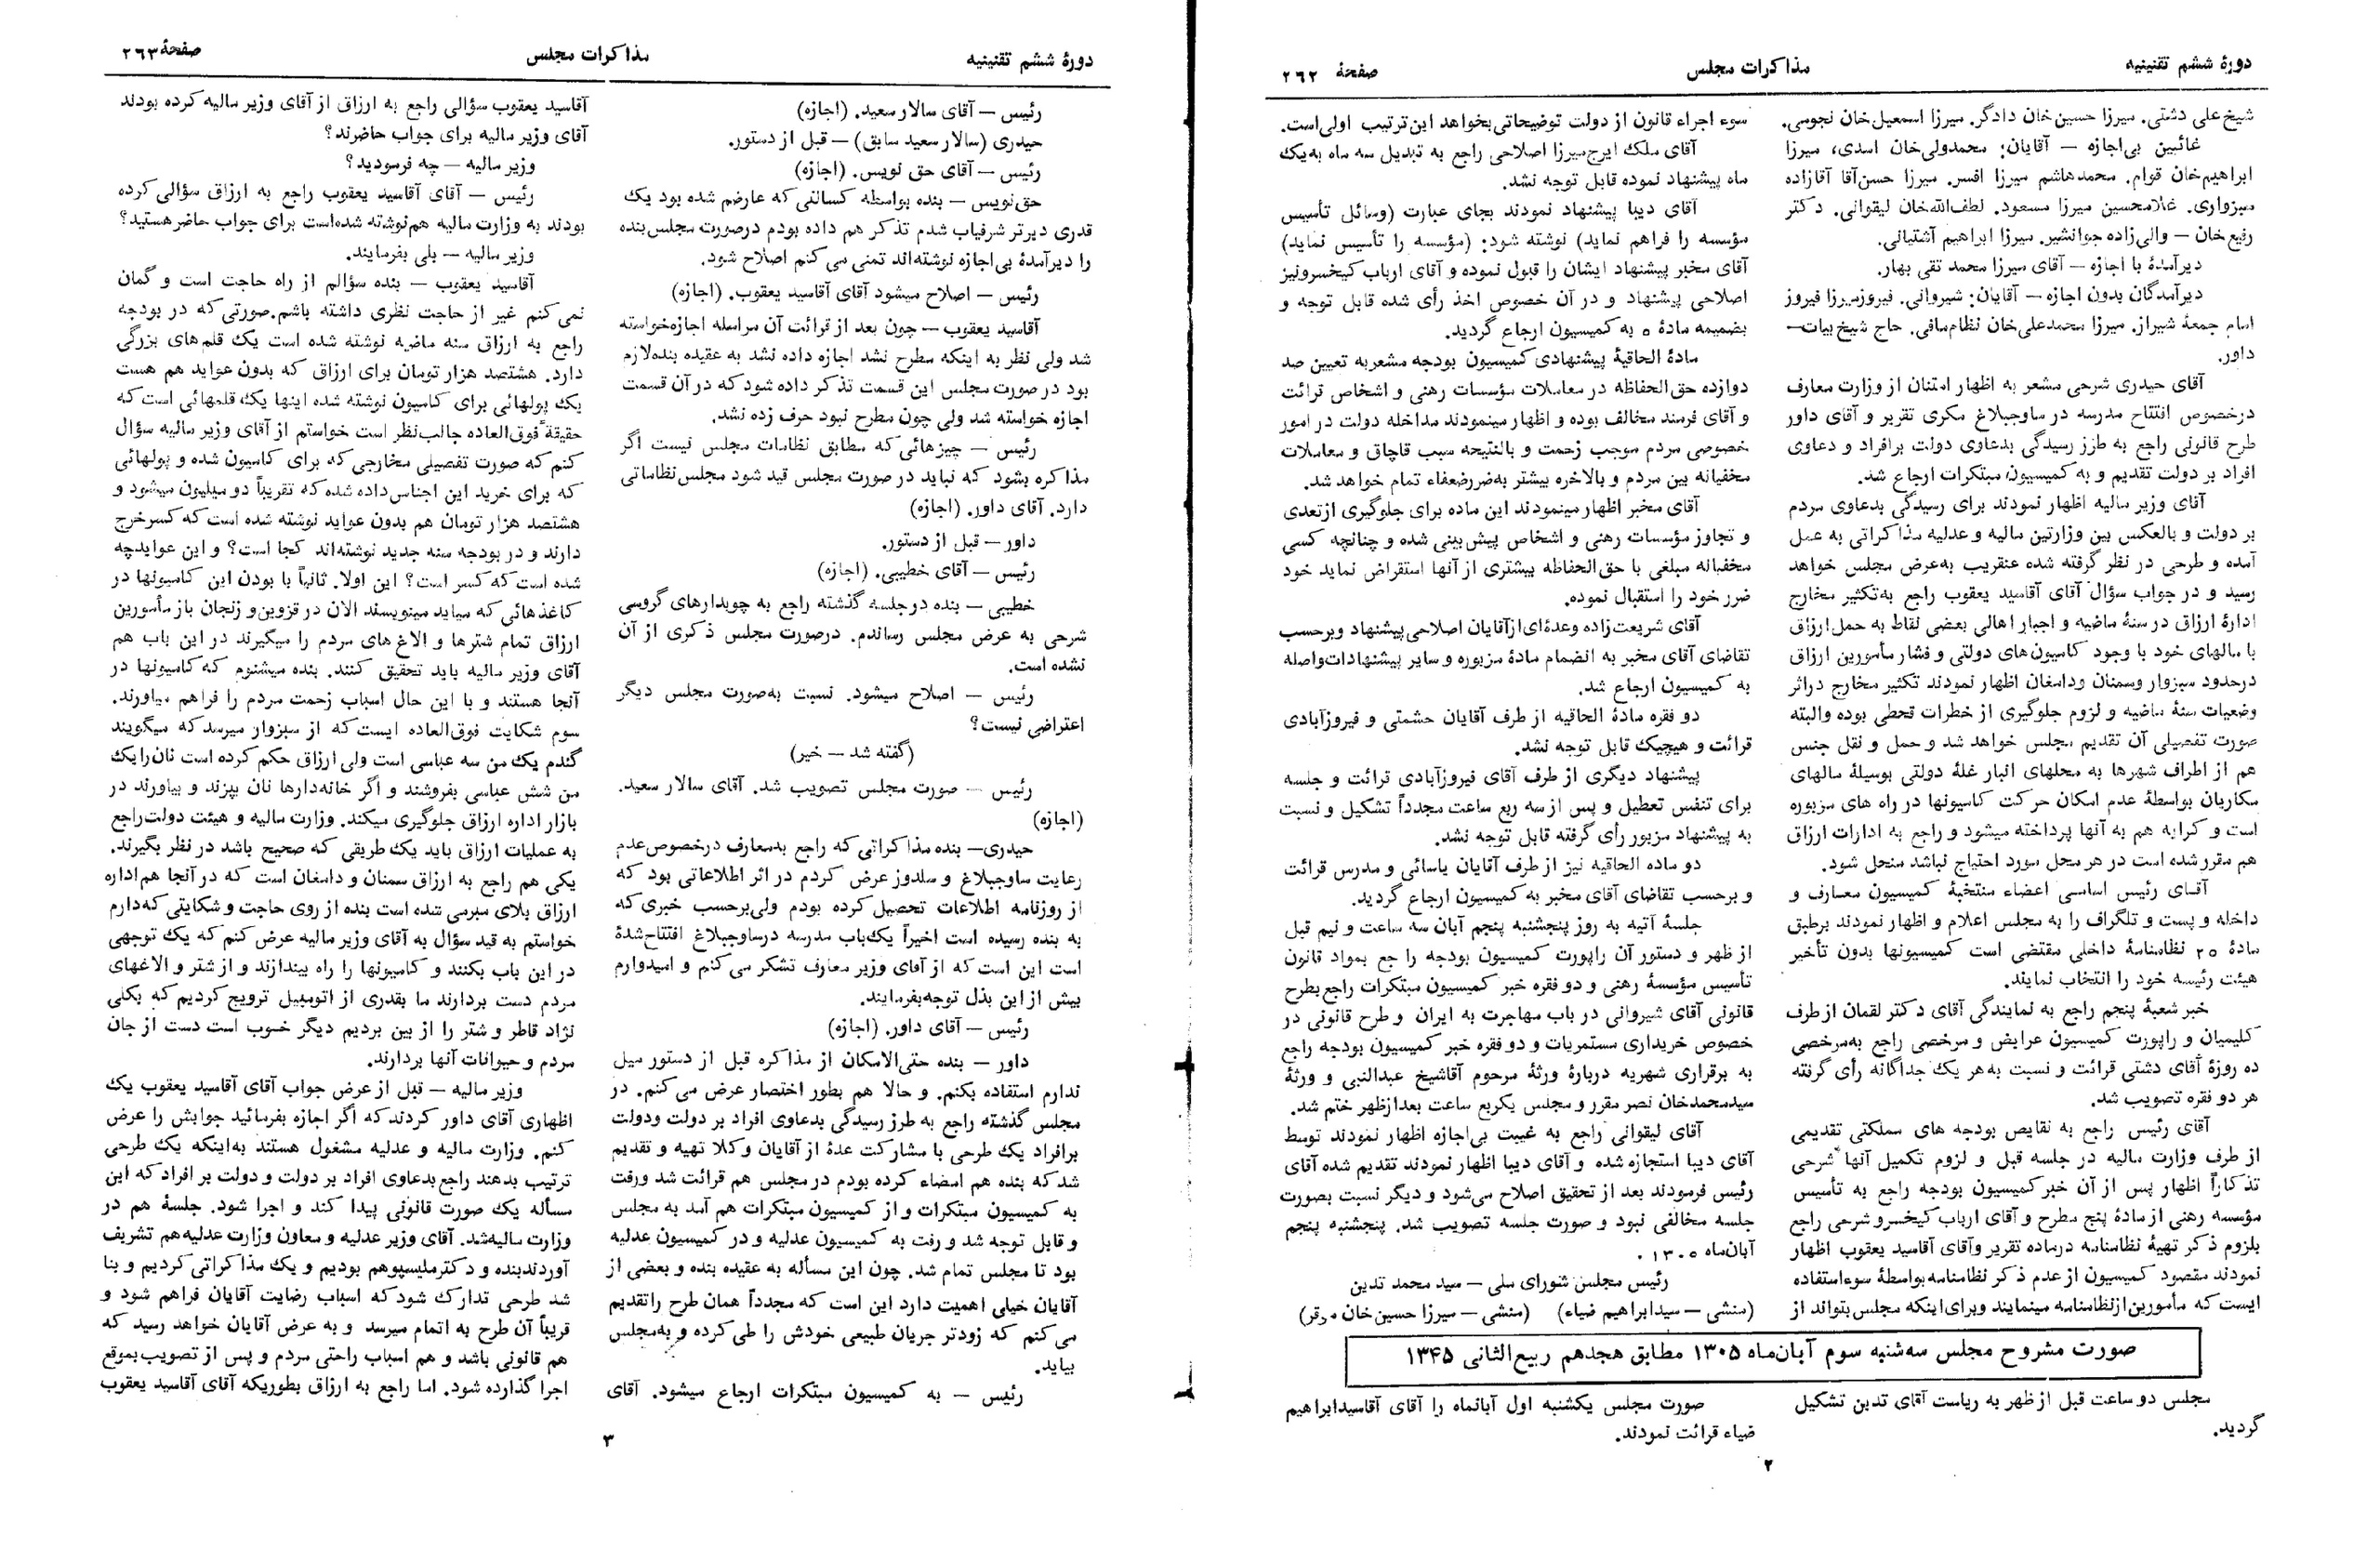 دورهٔ ششم تقنینیه
مذاکرات مجلس
صفحهٔ ۲۶۲
شیخ‌علی دشتی. میرزا حسین‌خان دادگر. میرزا اسمعیل‌خان نجومی.
غائبین بی‌اجازه — آقایان: محمدولی‌خان اسدی، میرزا
ابراهیم‌خان قوام. محمدهاشم میرزا افسر. میرزا حسن‌آقا آقازاده
سبزواری. غلامحسین میرزا مسعود. لطف‌الله‌خان لیقوانی. دکتر
رفیع‌خان — والی‌زاده جوانشیر. میرزا ابراهیم آشتیانی.
دیرآمدهٔ با اجازه — آقای میرزا محمد تقی بهار.
دیرآمدگان بدون اجازه — آقایان: شیروانی. فیروزمیرزا فیروز
امام جمعهٔ شیراز. میرزا محمدعلی‌خان نظام‌مافی. حاج شیخ بیات—
داور.
آقای حیدری شرحی مشعر به اظهار امتنان از وزارت معارف
درخصوص افتتاح مدرسه در ساوجبلاغ مکری تقریر و آقای داور
طرح قانونی راجع به طرز رسیدگی بدعاوی دولت برافراد و دعاوی
افراد بر دولت تقدیم و به کمیسیون مبتکرات ارجاع شد.
آقای وزیر مالیه اظهار نمودند برای رسیدگی بدعاوی مردم
بر دولت و بالعکس بین وزارتین مالیه و عدلیه مذاکراتی به عمل
آمده و طرحی در نظر گرفته شده عنقریب به‌عرض مجلس خواهد
رسید و در جواب سؤال آقای آقاسید یعقوب راجع به‌تکثیر مخارج
ادارهٔ ارزاق در سنهٔ ماضیه و اجبار اهالی بعضی نقاط به حمل‌ارزاق
با مالهای خود با وجود کامیون‌های دولتی و فشار مأمورین ارزاق
درحدود سبزوار وسمنان ودامغان اظهار نمودند تکثیر مخارج دراثر
وضعیات سنهٔ ماضیه و لزوم جلوگیری از خطرات قحطی بوده والبته
صورت تفصیلی آن تقدیم مجلس خواهد شد و حمل و نقل جنس
هم از اطراف شهرها به محلهای انبار غلهٔ دولتی بوسیلهٔ مالهای
مکاریان بواسطهٔ عدم امکان حرکت کامیونها در راه های مزبوره
است و کرایه هم به آنها پرداخته میشود و راجع به ادارات ارزاق
هم مقرر شده است در هر محل مورد احتیاج نباشد منحل شود.
آقای رئیس اسامی اعضاء منتخبهٔ کمیسیون معارف و
داخله و پست و تلگراف را به مجلس اعلام و اظهار نمودند برطبق
مادهٔ ۲۵ نظامنامهٔ داخلی مقتضی است کمیسیونها بدون تأخیر
هیئت رئیسه خود را انتخاب نمایند.
خبر شعبهٔ پنجم راجع به نمایندگی آقای دکتر لقمان ازطرف
کلیمیان و راپورت کمیسیون عرایض و مرخصی راجع به‌مرخصی
ده روزهٔ آقای دشتی قرائت و نسبت به‌هر یک جداگانه رأی گرفته
هر دو فقره تصویب شد.
آقای رئیس راجع به نقایص بودجه های مملکتی تقدیمی
از طرف وزارت مالیه در جلسه قبل و لزوم تکمیل آنها شرحی
تذکاراً اظهار پس از آن خبر کمیسیون بودجه راجع به تأسیس
مؤسسه رهنی از مادهٔ پنج مطرح و آقای ارباب کیخسرو شرحی راجع
بلزوم ذکر تهیهٔ نظامنامه درماده تقریر وآقای آقاسید یعقوب اظهار
نمودند مقصود کمیسیون از عدم ذکر نظامنامه بواسطهٔ سوءاستفاده
ایست که مأمورین‌ازنظامنامه مینمایند وبرای‌اینکه مجلس بتواند از
سوء اجراء قانون از دولت توضیحاتی بخواهد این‌ترتیب اولی‌است.
آقای ملک ایرج‌میرزا اصلاحی راجع به تبدیل سه ماه به‌یک
ماه پیشنهاد نموده قابل توجه نشد.
آقای دیبا پیشنهاد نمودند بجای عبارت (وسائل تأسیس
مؤسسه را فراهم نماید) نوشته شود: (مؤسسه را تأسیس نماید)
آقای مخبر پیشنهاد ایشان را قبول نموده و آقای ارباب کیخسرونیز
اصلاحی پیشنهاد و در آن خصوص اخذ رأی شده قابل توجه و
بضمیمه مادهٔ ۵ به کمیسیون ارجاع گردید.
مادهٔ الحاقیهٔ پیشنهادی کمیسیون بودجه مشعربه تعیین صد
دوازده حق‌الحفاظه در معاملات مؤسسات رهنی و اشخاص قرائت
و آقای فرمند مخالف بوده و اظهار مینمودند مداخله دولت در امور
خصوصی مردم موجب زحمت و بالنتیجه سبب قاچاق و معاملات
مخفیانه بین مردم و بالاخره بیشتر به‌ضررضعفاء تمام خواهد شد.
آقای مخبر اظهار مینمودند این ماده برای جلوگیری ازتعدی
و تجاوز مؤسسات رهنی و اشخاص پیش‌بینی شده و چنانچه کسی
مخفیانه مبلغی با حق‌الحفاظه بیشتری از آنها استقراض نماید خود
ضرر خود را استقبال نموده.
آقای شریعت‌زاده وعده‌ای‌ازآقایان اصلاحی پیشنهاد وبرحسب
تقاضای آقای مخبر به انضمام مادهٔ مزبوره و سایر پیشنهادات‌واصله
به کمیسیون ارجاع شد.
دو فقره مادهٔ الحاقیه از طرف آقایان حشمتی و فیروزآبادی
قرائت و هیچیک قابل توجه نشد.
پیشنهاد دیگری از طرف آقای فیروزآبادی قرائت و جلسه
برای تنفس تعطیل و پس از سه ربع ساعت مجدداً تشکیل و نسبت
به پیشنهاد مزبور رأی گرفته قابل توجه نشد.
دو ماده الحاقیه نیز از طرف آقایان یاسائی و مدرس قرائت
و برحسب تقاضای آقای مخبر به کمیسیون ارجاع گردید.
جلسهٔ آتیه به روز پنجشنبه پنجم آبان سه ساعت و نیم قبل
از ظهر و دستور آن راپورت کمیسیون بودجه را جع بمواد قانون
تأسیس مؤسسهٔ رهنی و دو فقره خبر کمیسیون مبتکرات راجع بطرح
قانونی آقای شیروانی در باب مهاجرت به ایران و طرح قانونی در
خصوص خریداری مستمریات و دو فقره خبر کمیسیون بودجه راجع
به برقراری شهریه دربارهٔ ورثهٔ مرحوم آقاشیخ عبدالنبی و ورثهٔ
سیدمحمدخان نصر مقرر و مجلس یکربع ساعت بعدازظهر ختم شد.
آقای لیقوانی راجع به غیبت بی‌اجازه اظهار نمودند توسط
آقای دیبا استجازه شده و آقای دیبا اظهار نمودند تقدیم شده آقای
رئیس فرمودند بعد از تحقیق اصلاح می‌شود و دیگر نسبت بصورت
جلسه مخالفی نبود و صورت جلسه تصویب شد. پنجشنبه پنجم
آبان‌ماه ۱۳۰۵.
رئیس مجلس شورای ملی — سید محمد تدین
(منشی — سیدابراهیم ضیاء) (منشی — میرزا حسین‌خان موقر)
صورت مشروح مجلس سه‌شنبه سوم آبان‌ماه ۱۳۰۵ مطابق هجدهم ربیع‌الثانی ۱۳۴۵
مجلس دو ساعت قبل از ظهر به ریاست آقای تدین تشکیل
گردید.
صورت مجلس یکشنبه اول آبانماه را آقای آقاسیدابراهیم
ضیاء قرائت نمودند.
۲
دورهٔ ششم تقنینیه
مذاکرات مجلس
صفحهٔ ۲۶۳
رئیس — آقای سالار سعید. (اجازه)
حیدری (سالار سعید سابق) — قبل از دستور.
رئیس — آقای حق نویس. (اجازه)
حق‌نویس — بنده بواسطه کسالتی که عارضم شده بود یک
قدری دیرتر شرفیاب شدم تذکر هم داده بودم درصورت مجلس‌بنده
را دیرآمدهٔ بی‌اجازه نوشته‌اند تمنی می‌کنم اصلاح شود.
رئیس — اصلاح میشود آقای آقاسید یعقوب. (اجازه)
آقاسید یعقوب — چون بعد از قرائت آن مراسله اجازه‌خواسته
شد ولی نظر به اینکه مطرح نشد اجازه داده نشد به عقیده بنده‌لازم
بود در صورت مجلس این قسمت تذکر داده شود که در آن قسمت
اجازه خواسته شد ولی چون مطرح نبود حرف زده نشد.
رئیس — چیزهائی که مطابق نظامات مجلس نیست اگر
مذاکره بشود که نباید در صورت مجلس قید شود مجلس‌نظاماتی
دارد. آقای داور. (اجازه)
داور — قبل از دستور.
رئیس — آقای خطیبی. (اجازه)
خطیبی — بنده درجلسه گذشته راجع به چوبدارهای گروسی
شرحی به عرض مجلس رساندم. درصورت مجلس ذکری از آن
نشده است.
رئیس — اصلاح میشود. نسبت به‌صورت مجلس دیگر
اعتراضی نیست؟
(گفته شد — خیر)
رئیس — صورت مجلس تصویب شد. آقای سالار سعید.
(اجازه)
حیدری— بنده مذاکراتی که راجع بمعارف درخصوص‌عدم
رعایت ساوجبلاغ و سلدوز عرض کردم در اثر اطلاعاتی بود که
از روزنامه اطلاعات تحصیل کرده بودم ولی‌برحسب خبری که
به بنده رسیده است اخیراً یک‌باب مدرسه درساوجبلاغ افتتاح‌شدهٔ
است این است که از آقای وزیر معارف تشکر می‌کنم و امیدوارم
بیش از این بذل توجه‌بفرمایند.
رئیس — آقای داور. (اجازه)
داور — بنده حتی‌الامکان از مذاکره قبل از دستور میل
ندارم استفاده بکنم. و حالا هم بطور اختصار عرض می‌کنم. در
مجلس گذشته راجع به طرز رسیدگی بدعاوی افراد بر دولت ودولت
برافراد یک طرحی با مشارکت عدهٔ از آقایان وکلا تهیه و تقدیم
شد که بنده هم امضاء کرده بودم در مجلس هم قرائت شد ورفت
به کمیسیون مبتکرات و از کمیسیون مبتکرات هم آمد به مجلس
و قابل توجه شد و رفت به کمیسیون عدلیه و در کمیسیون عدلیه
بود تا مجلس تمام شد. چون این مسأله به عقیده بنده و بعضی از
آقایان خیلی اهمیت دارد این است که مجدداً همان طرح راتقدیم
می‌کنم که زودتر جریان طبیعی خودش را طی کرده و به‌مجلس
بیاید.
رئیس — به کمیسیون مبتکرات ارجاع میشود. آقای
آقاسید یعقوب سؤالی راجع به ارزاق از آقای وزیر مالیه کرده بودند
آقای وزیر مالیه برای جواب حاضرند؟
وزیر مالیه — چه فرمودید؟
رئیس — آقای آقاسید یعقوب راجع به ارزاق سؤالی کرده
بودند به وزارت مالیه هم‌نوشته شده‌است برای جواب حاضرهستید؟
وزیر مالیه — بلی بفرمایند.
آقاسید یعقوب — بنده سؤالم از راه حاجت است و گمان
نمی‌کنم غیر از حاجت نظری داشته باشم.صورتی که در بودجه
راجع به ارزاق سنه ماضیه نوشته شده است یک قلم‌های بزرگی
دارد. هشتصد هزار تومان برای ارزاق که بدون عواید هم هست
یک پولهائی برای کامیون نوشته شده اینها یک قلمهائی است که
حقیقةً فوق‌العاده جالب‌نظر است خواستم از آقای وزیر مالیه سؤال
کنم که صورت تفصیلی مخارجی که برای کامیون شده و پولهائی
که برای خرید این اجناس داده شده که تقریباً دو میلیون میشود و
هشتصد هزار تومان هم بدون عواید نوشته شده است که کسرخرج
دارند و در بودجه سنه جدید نوشته‌اند کجا است؟ و این عوایدچه
شده است که کسر است؟ این اولا. ثانیاً با بودن این کامیونها در
کاغذهائی که میاید مینویسند الان در قزوین و زنجان باز مأمورین
ارزاق تمام شترها و الاغ های مردم را میگیرند در این باب هم
آقای وزیر مالیه باید تحقیق کنند. بنده میشنوم که کامیونها در
آنجا هستند و با این حال اسباب زحمت مردم را فراهم میاورند.
سوم شکایت فوق‌العاده ایست که از سبزوار میرسد که میگویند
گندم یک من سه عباسی است ولی ارزاق حکم کرده است نان‌رایک
من شش عباسی بفروشند و اگر خانه‌دارها نان بپزند و بیاورند در
بازار اداره ارزاق جلوگیری میکند. وزارت مالیه و هیئت دولت‌راجع
به عملیات ارزاق باید یک طریقی که صحیح باشد در نظر بگیرند.
یکی هم راجع به ارزاق سمنان و دامغان است که در آنجا هم‌اداره
ارزاق بلای مبرمی شده است بنده از روی حاجت و شکایتی که‌دارم
خواستم به قید سؤال به آقای وزیر مالیه عرض کنم که یک توجهی
در این باب بکنند و کامیونها را راه بیندازند و از شتر و الاغهای
مردم دست بردارند ما بقدری از اتومبیل ترویج کردیم که بکلی
نژاد قاطر و شتر را از بین بردیم دیگر خوب است دست از جان
مردم و حیوانات آنها بردارند.
وزیر مالیه — قبل از عرض جواب آقای آقاسید یعقوب یک
اظهاری آقای داور کردند که اگر اجازه بفرمائید جوابش را عرض
کنم. وزارت مالیه و عدلیه مشغول هستند به‌اینکه یک طرحی
ترتیب بدهند راجع بدعاوی افراد بر دولت و دولت بر افراد که این
مسأله یک صورت قانونی پیدا کند و اجرا شود. جلسهٔ هم در
وزارت مالیه‌شد. آقای وزیر عدلیه و معاون وزارت عدلیه‌هم تشریف
آوردندبنده و دکترملیسپوهم بودیم و یک مذاکراتی کردیم و بنا
شد طرحی تدارک شود که اسباب رضایت آقایان فراهم شود و
قریباً آن طرح به اتمام میرسد و به عرض آقایان خواهد رسید که
هم قانونی باشد و هم اسباب راحتی مردم و پس از تصویب‌بموقع
اجرا گذارده شود. اما راجع به ارزاق بطوریکه آقای آقاسید یعقوب
۳